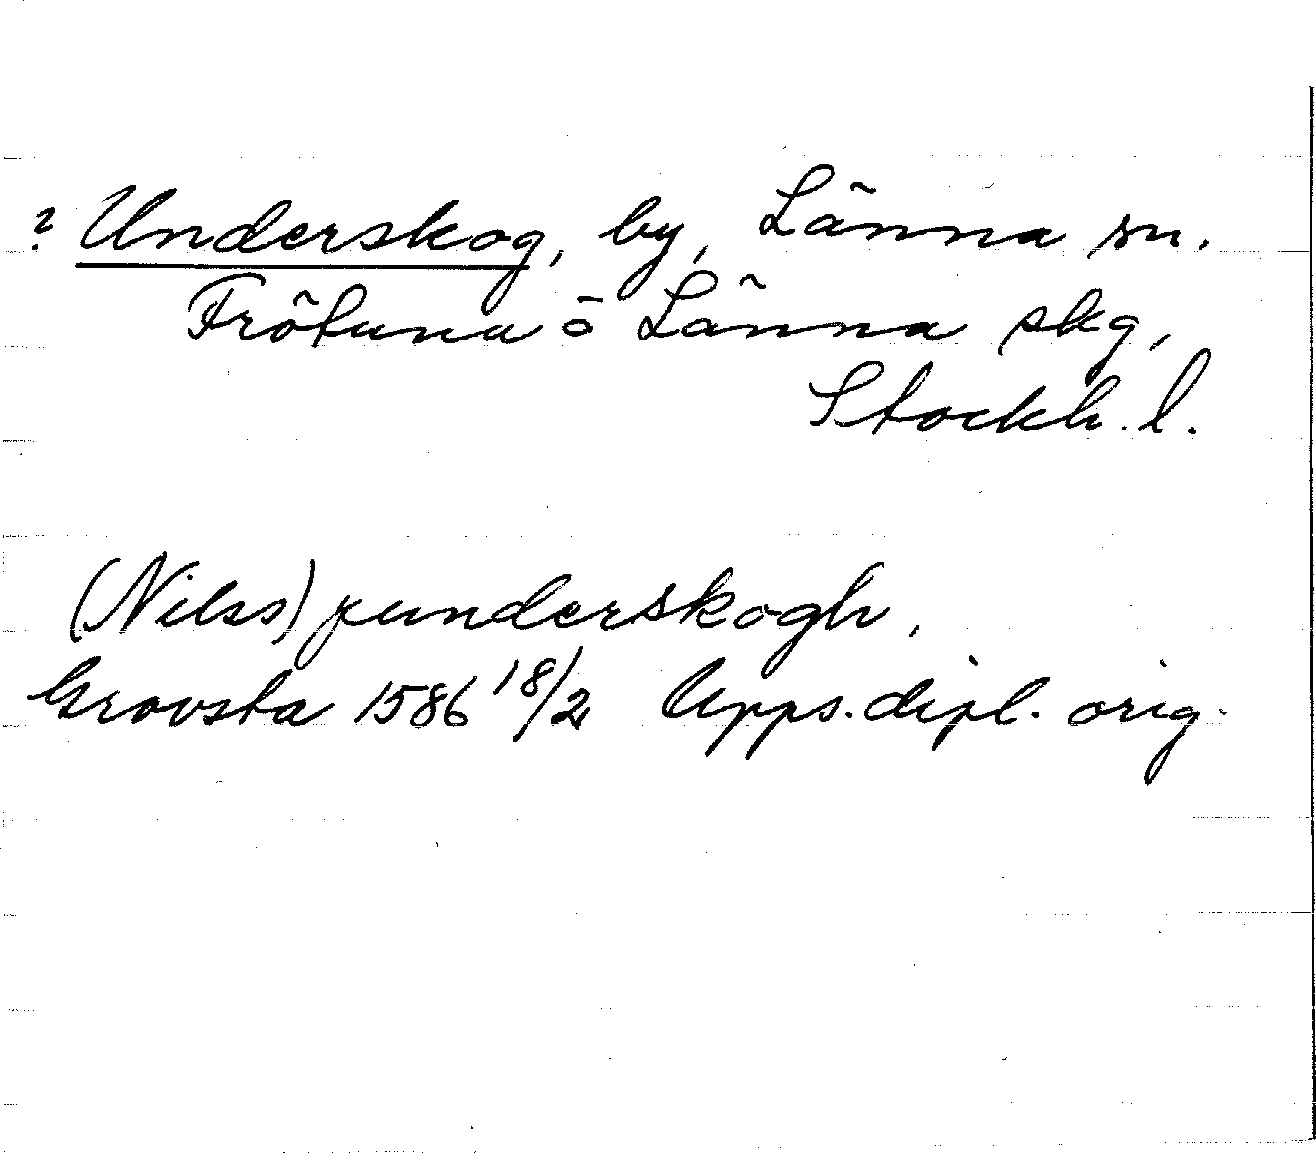 ? Underskog, by, Länna sn.
Frötuna o Länna skg,
Stockh. l.
(Nilss) junderskogh,
Grovsta 1586 18/2 Upps. dipl. orig.